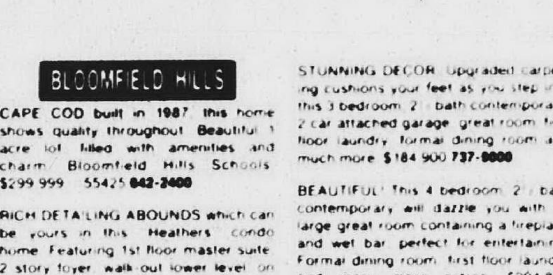 BLOOMFIELD HILLS
CAPE COD built in 1987 this home
shows quality throughout Beautiful 1
acre lot filled with amenities and
charm Bloomfield Hills Schools
$299 999 55425 642-2400
RICH DETAILING ABOUNDS which can
be yours in this Heathers condo
home Featuring 1st floor master suite
2 story foyer walk-out lower level on
STUNNING DECOR Upgraded carpe
ing cushions your feet as you step in
this 3 bedroom 2 bath contempora
2 car attached garage great room fir
floor laundry formal dining room a
much more $184 900 737-9000
BEAUTIFUL! This 4 bedroom 2 ba
contemporary will dazzle you with
large great room containing a firepla
and wet bar perfect for entertainin
Formal dining room first floor laund